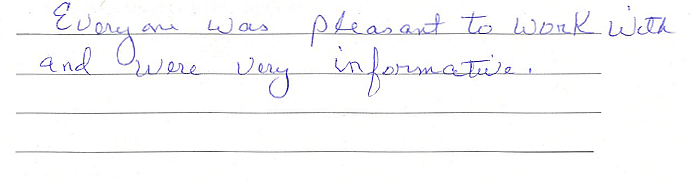 Everyone was pleasant to work with
and were very informative.